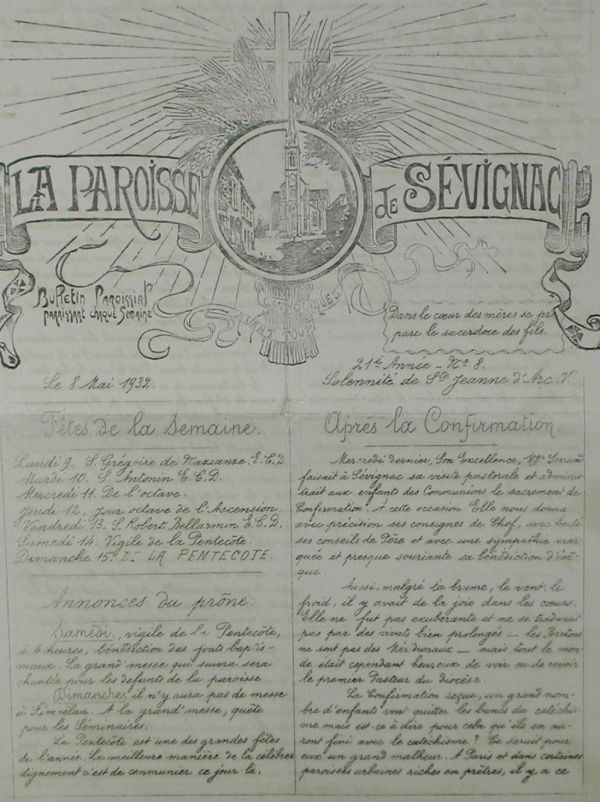 LA PAROISSE
DE SÉVIGNAC
Bulletin Paroissial
PARAISSANT CHAQUE SEMAINE
CATHOLIQUES
TOUJOURS
Dans le cœur des mères se pré
pare le sacerdoce des fils.
21e Année - No 8.
Le 8 Mai 1932.
Solennité de Ste Jeanne d'Arc. V.
Fêtes de la Semaine.
Lundi 9. S. Grégoire de Nazianze. E.C.D
Mardi 10. S. Antonin E.C.D.
Mercredi 11. De l'octave.
Jeudi 12. Jour octave de l'Ascension.
Vendredi 13. S. Robert Bellarmin E.C.D.
Samedi 14. Vigile de la Pentecôte.
Dimanche 15. DE LA PENTECOTE
Annonces du prône.
Samedi, vigile de la Pentecôte,
à 6 heures, bénédiction des fonts baptis-
maux. La grand'messe qui suivra sera
chantée pour les defunts de la paroisse.
Dimanche, il n'y aura pas de messe
à Limrelan. A la grand'messe, quête
pour les Séminaires.
La Pentecôte est une des grandes fêtes
de l'année. La meilleure manière de la célébrer
dignement c'est de communier ce jour-là.
Après la Confirmation.
Mercredi dernier, Son Excellence, Mgr Serrand
faisait à Sévignac sa visite pastorale et adminis
trait aux enfants des Communions le sacrement de
Confirmation. A cette occasion Elle nous donna
avec précision ses consignes de Chef, avec bonté
ses conseils de Père et avec une sympathie mar
quée et presque souriante sa bénédiction d'évê-
que.
Aussi, malgré la brume, le vent, le
froid, il y avait de la joie dans les cœurs.
Elle ne fut pas exubérante et ne se traduisit
pas par des vivats bien prolongés — les Bretons
ne sont pas des Méridionaux — mais tout le mon-
de était cependant heureux de voir ou de revoir
le premier Pasteur du diocèse.
La Confirmation reçue, un grand nom-
bre d'enfants vont quitter les bancs du catéchis
me mais est-ce à dire pour cela qu'ils en au-
ront fini avec le catéchisme ? Ce serait pour
eux un grand malheur. A Paris et dans certaines
paroisses urbaines riches en prêtres, il y a ce